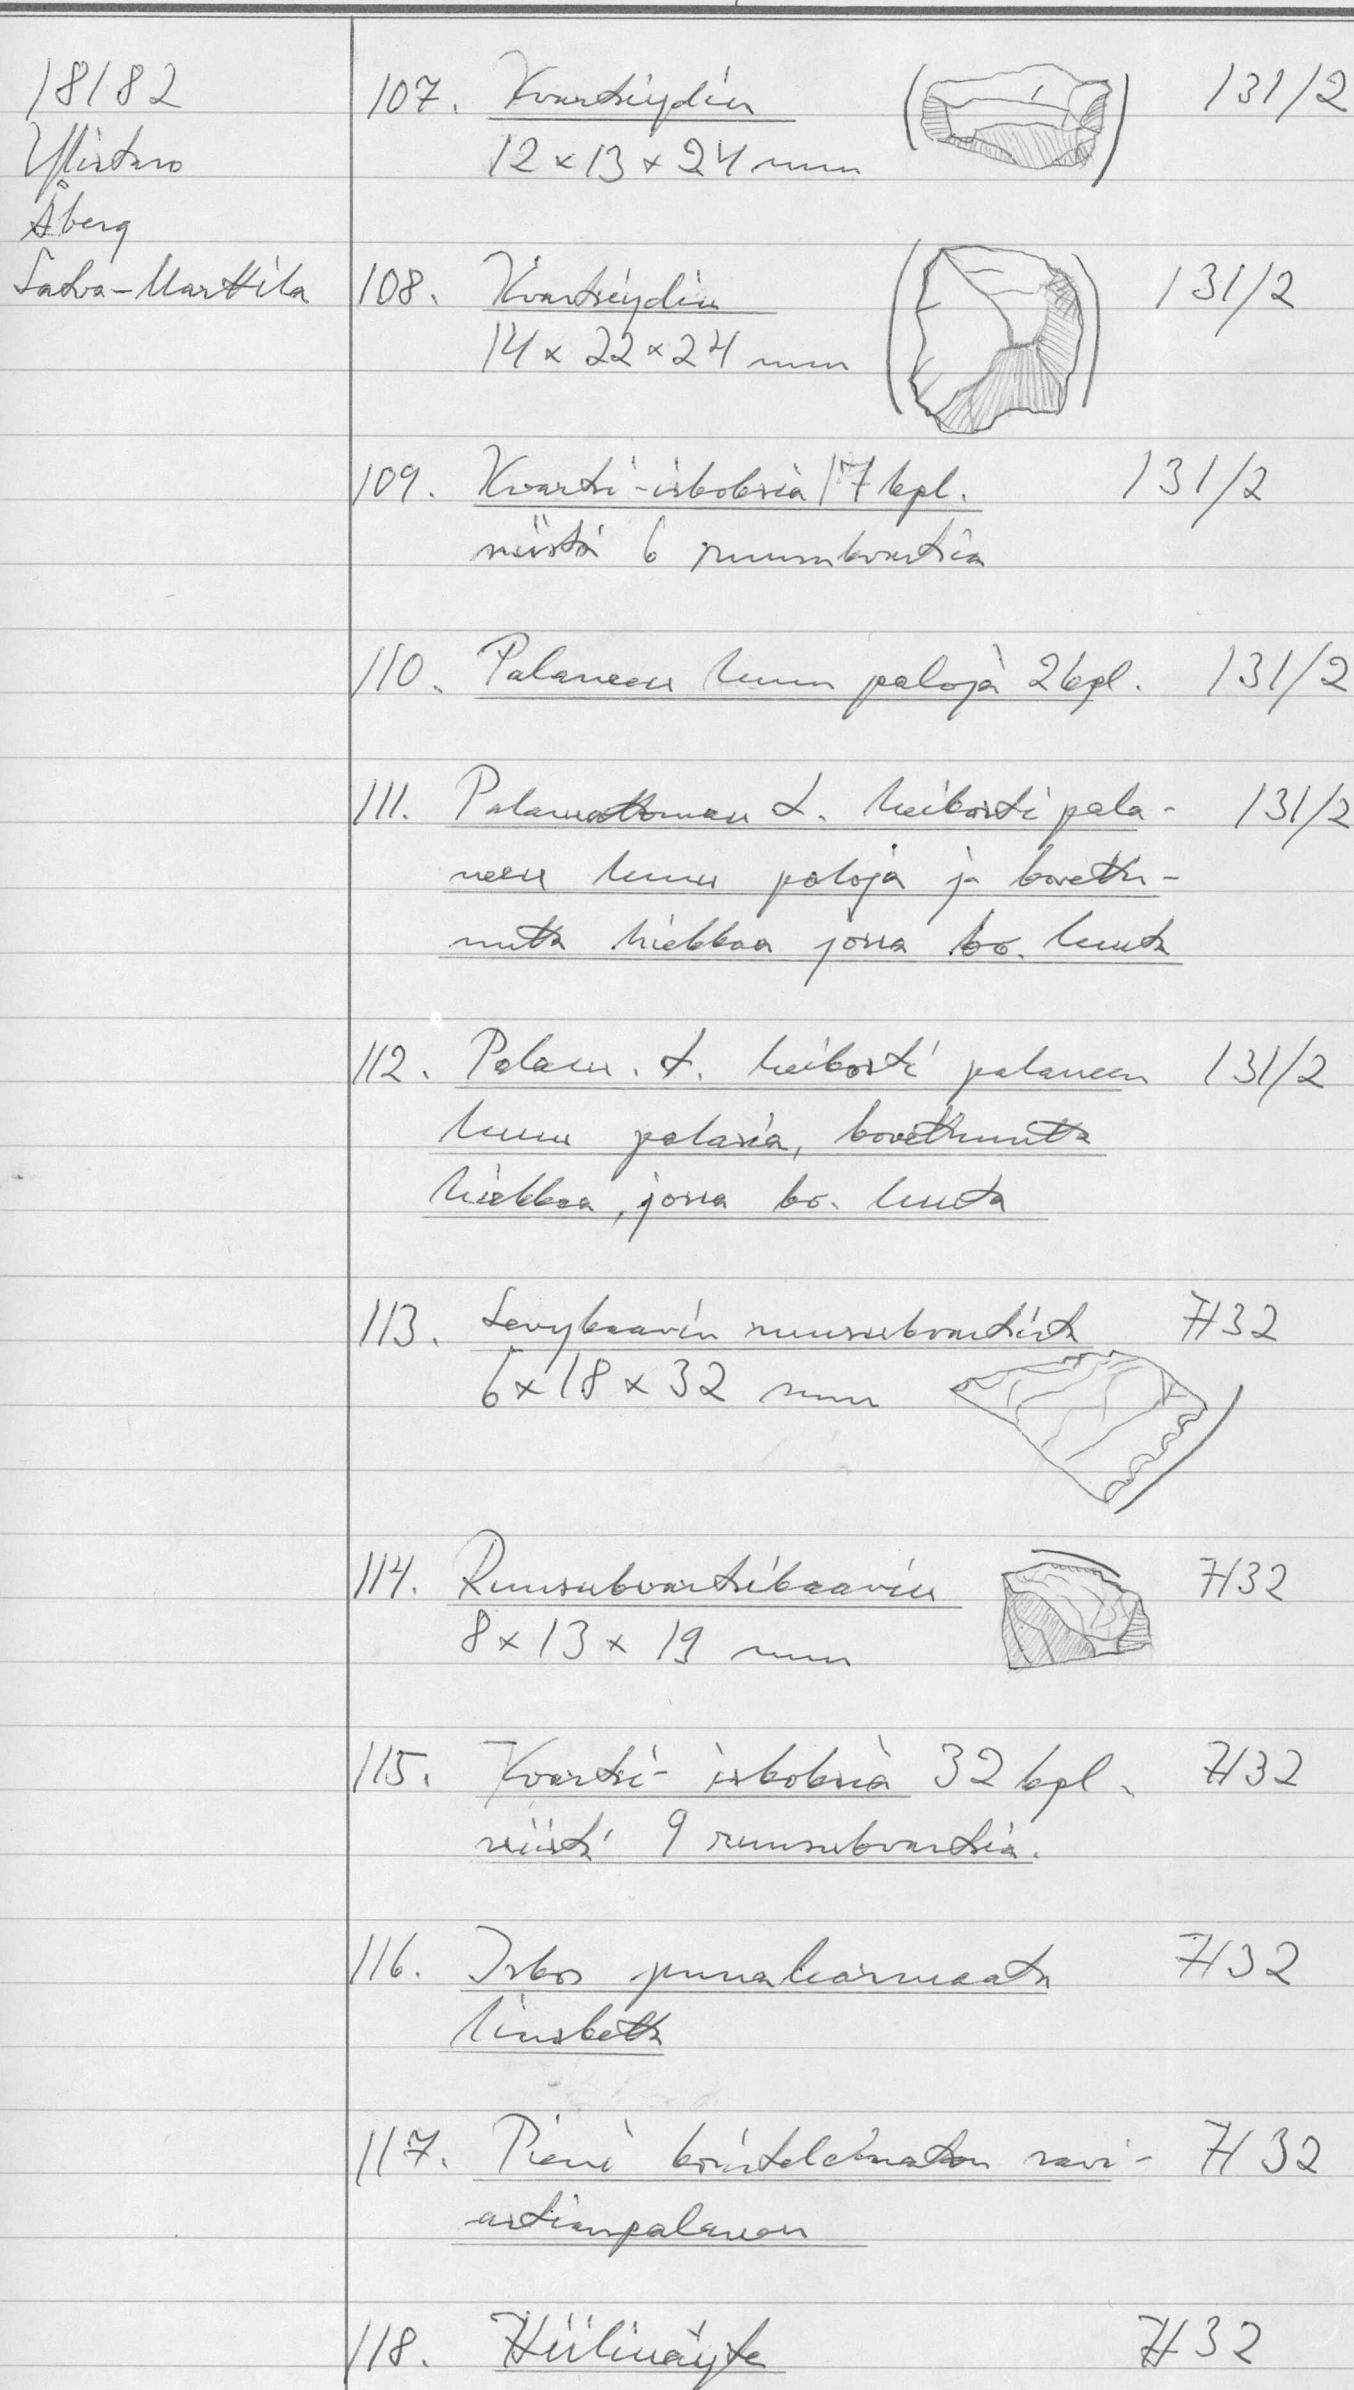 18182
Ylistaro
Åberg
Saha-Marttila
107. Kvartsiydin 131/2
12 x 13 x 24 mm
108. Kvartsiydin 131/2
14 x 22 x 24 mm
109. Kvartsi-iskoksia 17 kpl. 131/2
niistä 6 ruusukvartsia
110. Palaneen luun paloja 2 kpl. 131/2
111. Palamattoman t. heikosti pala- 131/2
neen luun paloja ja kovettu-
nutta hiekkaa jossa ko. luuta
112. Palam. t. heikosti palaneen 131/2
luun palasia, kovettunutta
hiekkaa, jossa ko. luuta
113. Levykaavin ruusukvartsista H32
6 x 18 x 32 mm
114. Ruusukvartsikaavin H32
8 x 13 x 19 mm
115. Kvartsi-iskoksia 32 kpl. H32
niistä 9 ruusukvartsia.
116. Iskos punaharmaata H32
liusketta
117. Pieni koristelematon savi- H32
astianpalanen
118. Hiilinäyte H32